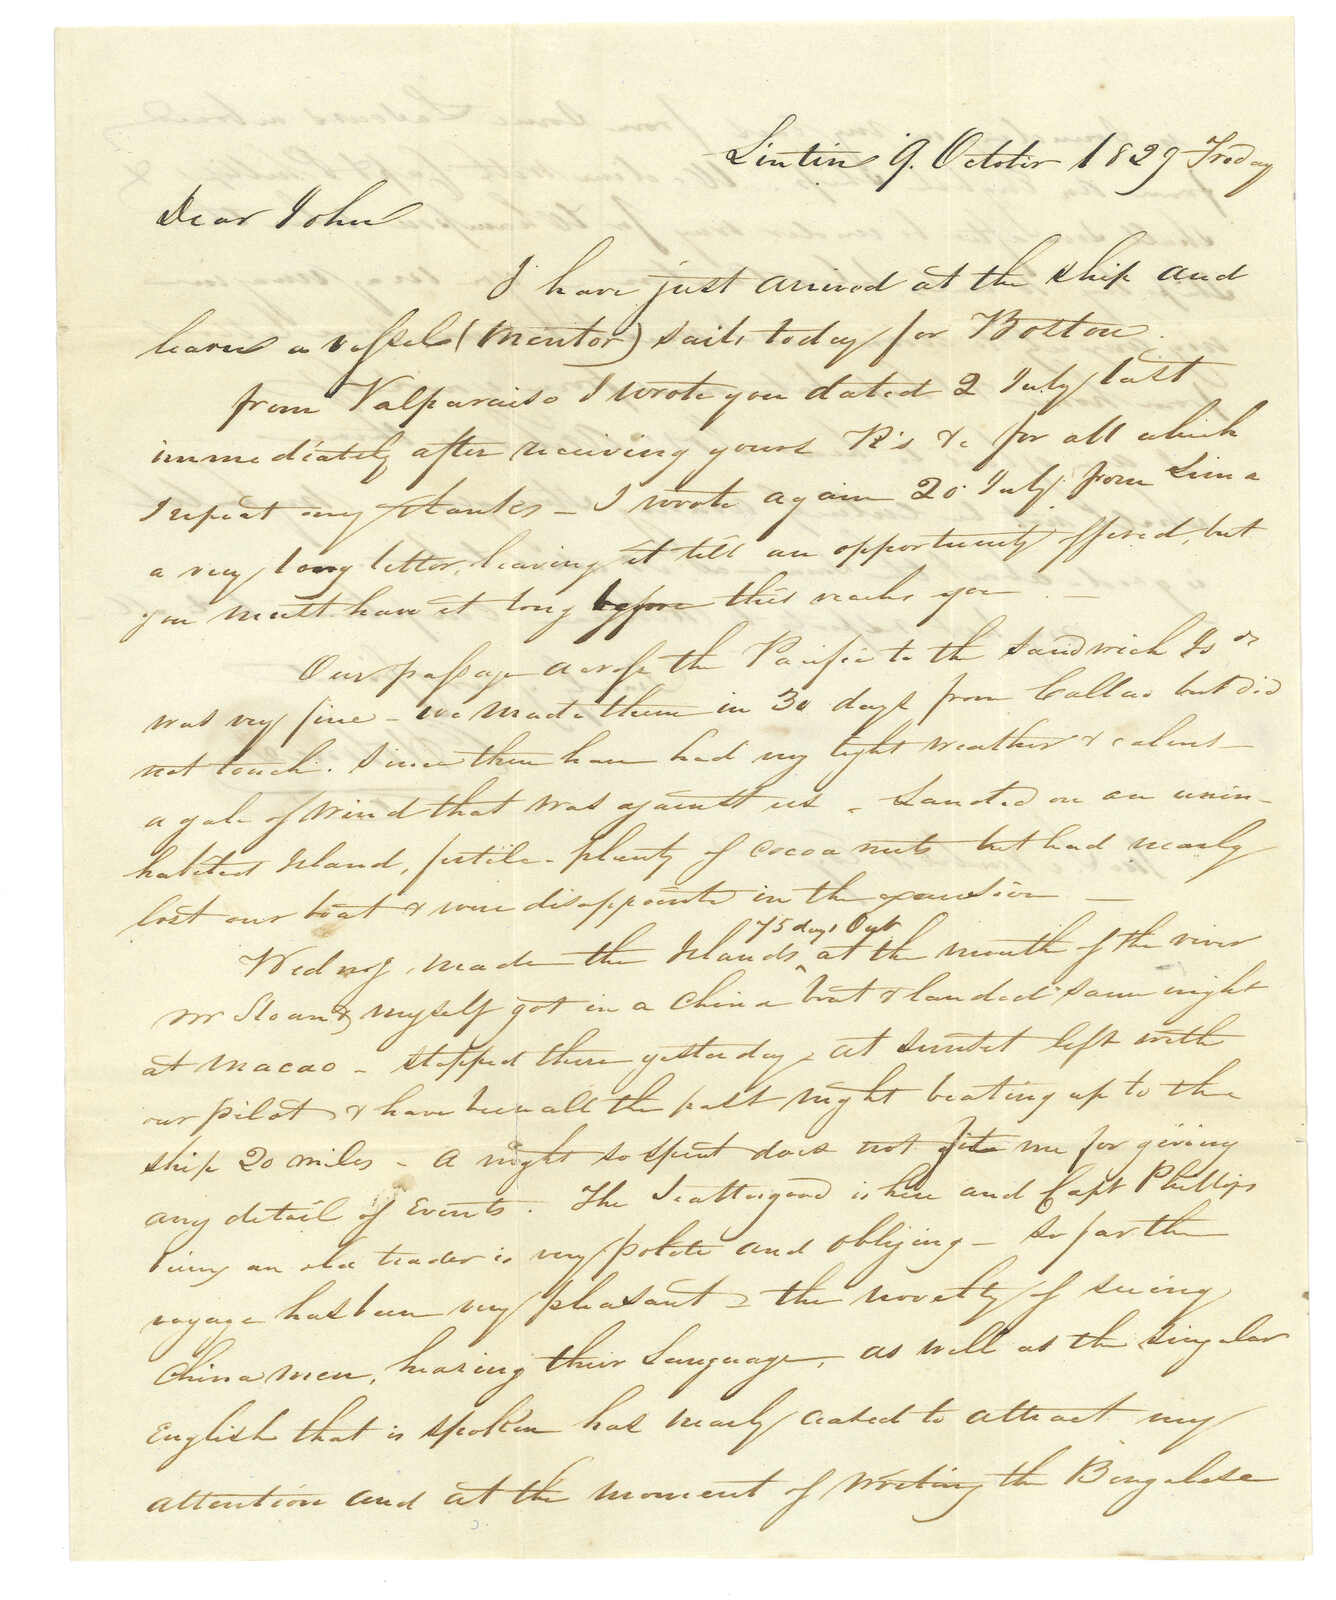 Lintin 9. October 1829 Friday
Dear John
I have just arrived at the ship and
learn a vessel (Mentor) sails today for Boston.
from Valparaiso I wrote you dated 2 July last
immediately after receiving yours R's &c for all which
I repeat my thanks – I wrote again 20 July from Lima
a very long letter, leaving it till an opportunity offered, but
you must have it long before this reaches you. –
Our passage across the Pacific to the Sandwich Is ds
was very fine – we made them in 30 days from Callao but did
not touch. Since then have had very light weather & calms –
a gale of wind that was against us – Landed on an unin-
habited Island, fertile – plenty of cocoa nuts but had nearly
lost our boat & were disappointed in the excursion –
75 days Out
Wednsy made the Islands ^ at the mouth of the river
Mr Sloan & myself got in a China boat & landed same night
at Macao – stopped there yesterday, at sunset left with
our pilot & have been all the past night beating up to the
ship 20 miles – a night so spent does not fit me for giving
any detail of Events. The Scattergood is here and Capt Phillips
being an old trader is very polite and obliging – so far the
voyage has been very pleasant & the novelty of seeing
China men, hearing their Language, as well as the singular
English that is spoken has nearly ceased to attract my
attention and at the moment of writing the Bengalese